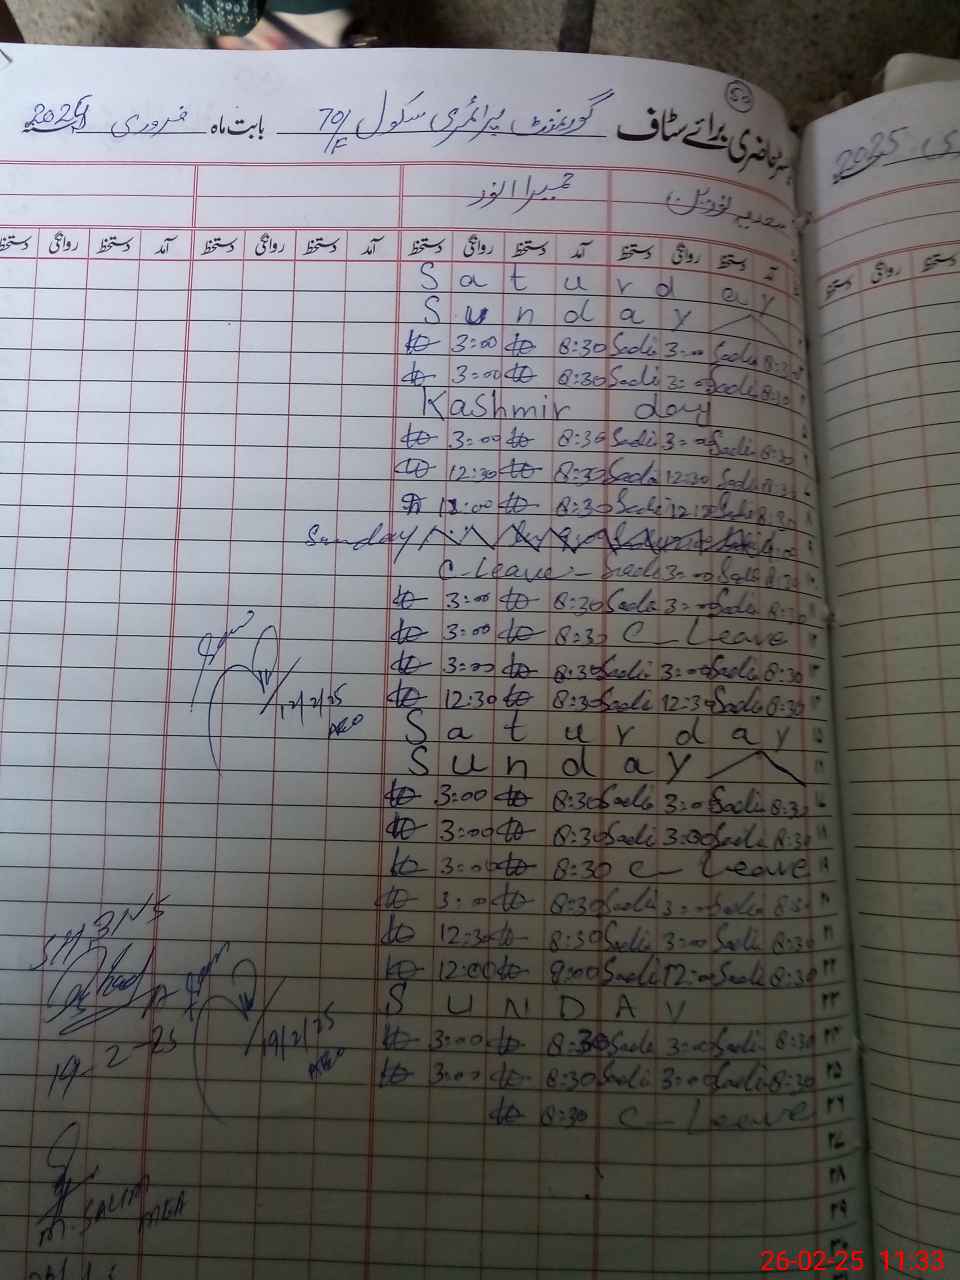 50
رجسٹر حاضری برائے سٹاف گورنمنٹ پرائمری سکول 70/F بابت ماہ فروری 2024
2025
سعدیہ نورین حمیرا انور
آمد دستخط روانگی دستخط آمد دستخط روانگی دستخط آمد دستخط روانگی دستخط آمد دستخط روانگی دستخط
دستخط روانگی دستخط
Saturday
Sunday
3:00 8:30 Sadi 3:00 Sadi 8:30
3:00 8:30 Sadi 3:00 Sadi 8:30
Kashmir day
3:00 8:30 Sadi 3:00 Sadi 8:30
12:30 8:30 Sadi 12:30 Sadi 8:30
12:00 8:30 Sadi 12:30 Sadi 8:30
Sunday
C-Leave - Sadi 3:00 Sadi 8:30
3:00 8:30 Sadi 3:00 Sadi 8:30
3:00 8:30 C-Leave
3:00 8:30 Sadi 3:00 Sadi 8:30
12:30 8:30 Sadi 12:30 Sadi 8:30
12/2/25
AEO
Saturday
Sunday
3:00 8:30 Sadi 3:00 Sadi 8:30
3:00 8:30 Sadi 3:00 Sadi 8:30
3:00 8:30 C-Leave
3:00 8:30 Sadi 3:00 Sadi 8:30
12:30 8:30 Sadi 3:00 Sadi 8:30
12:00 9:00 Sadi 12:00 Sadi 8:30
SUNDAY
3:00 8:30 Sadi 3:00 Sadi 8:30
3:00 8:30 Sadi 3:00 Sadi 8:30
8:30 C-Leave
19/2/25
AEO
19-2-25
M. SALIM
MEA
۲۷
۲۸
۲۹
۳۰
26-02-25 11:33